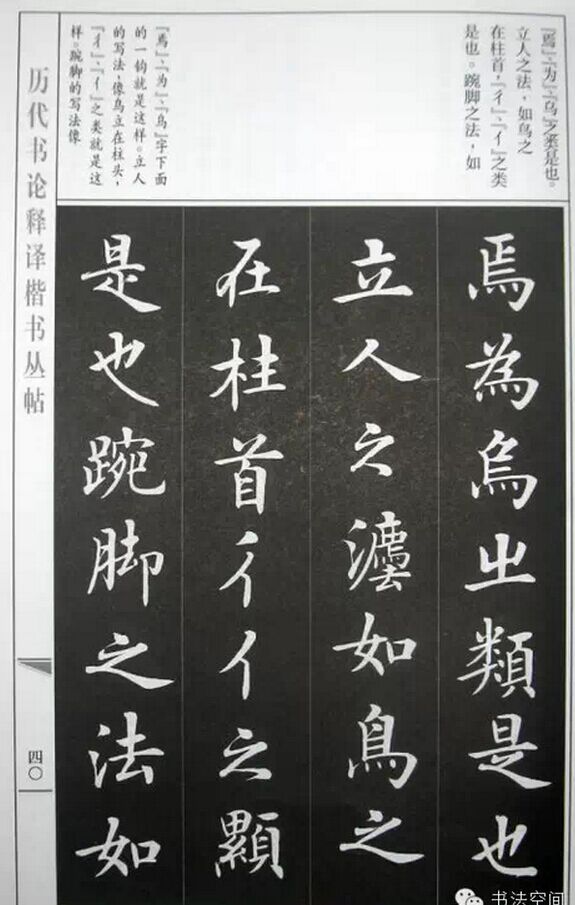 『焉』、『为』、『乌』之类是也。
立人之法，如鸟之
在柱首，『彳』、『亻』之类
是也。踠脚之法，如
『焉』、『为』、『乌』字下面
的一钩就是这样。立人
的写法，像鸟立在柱头，
『彳』、『亻』之类就是这
样。踠脚的写法像
焉為烏之類是也
立人之灋如鳥之
在柱首彳亻之類
是也踠脚之法如
历代书论释译楷书丛帖
四〇
书法空间